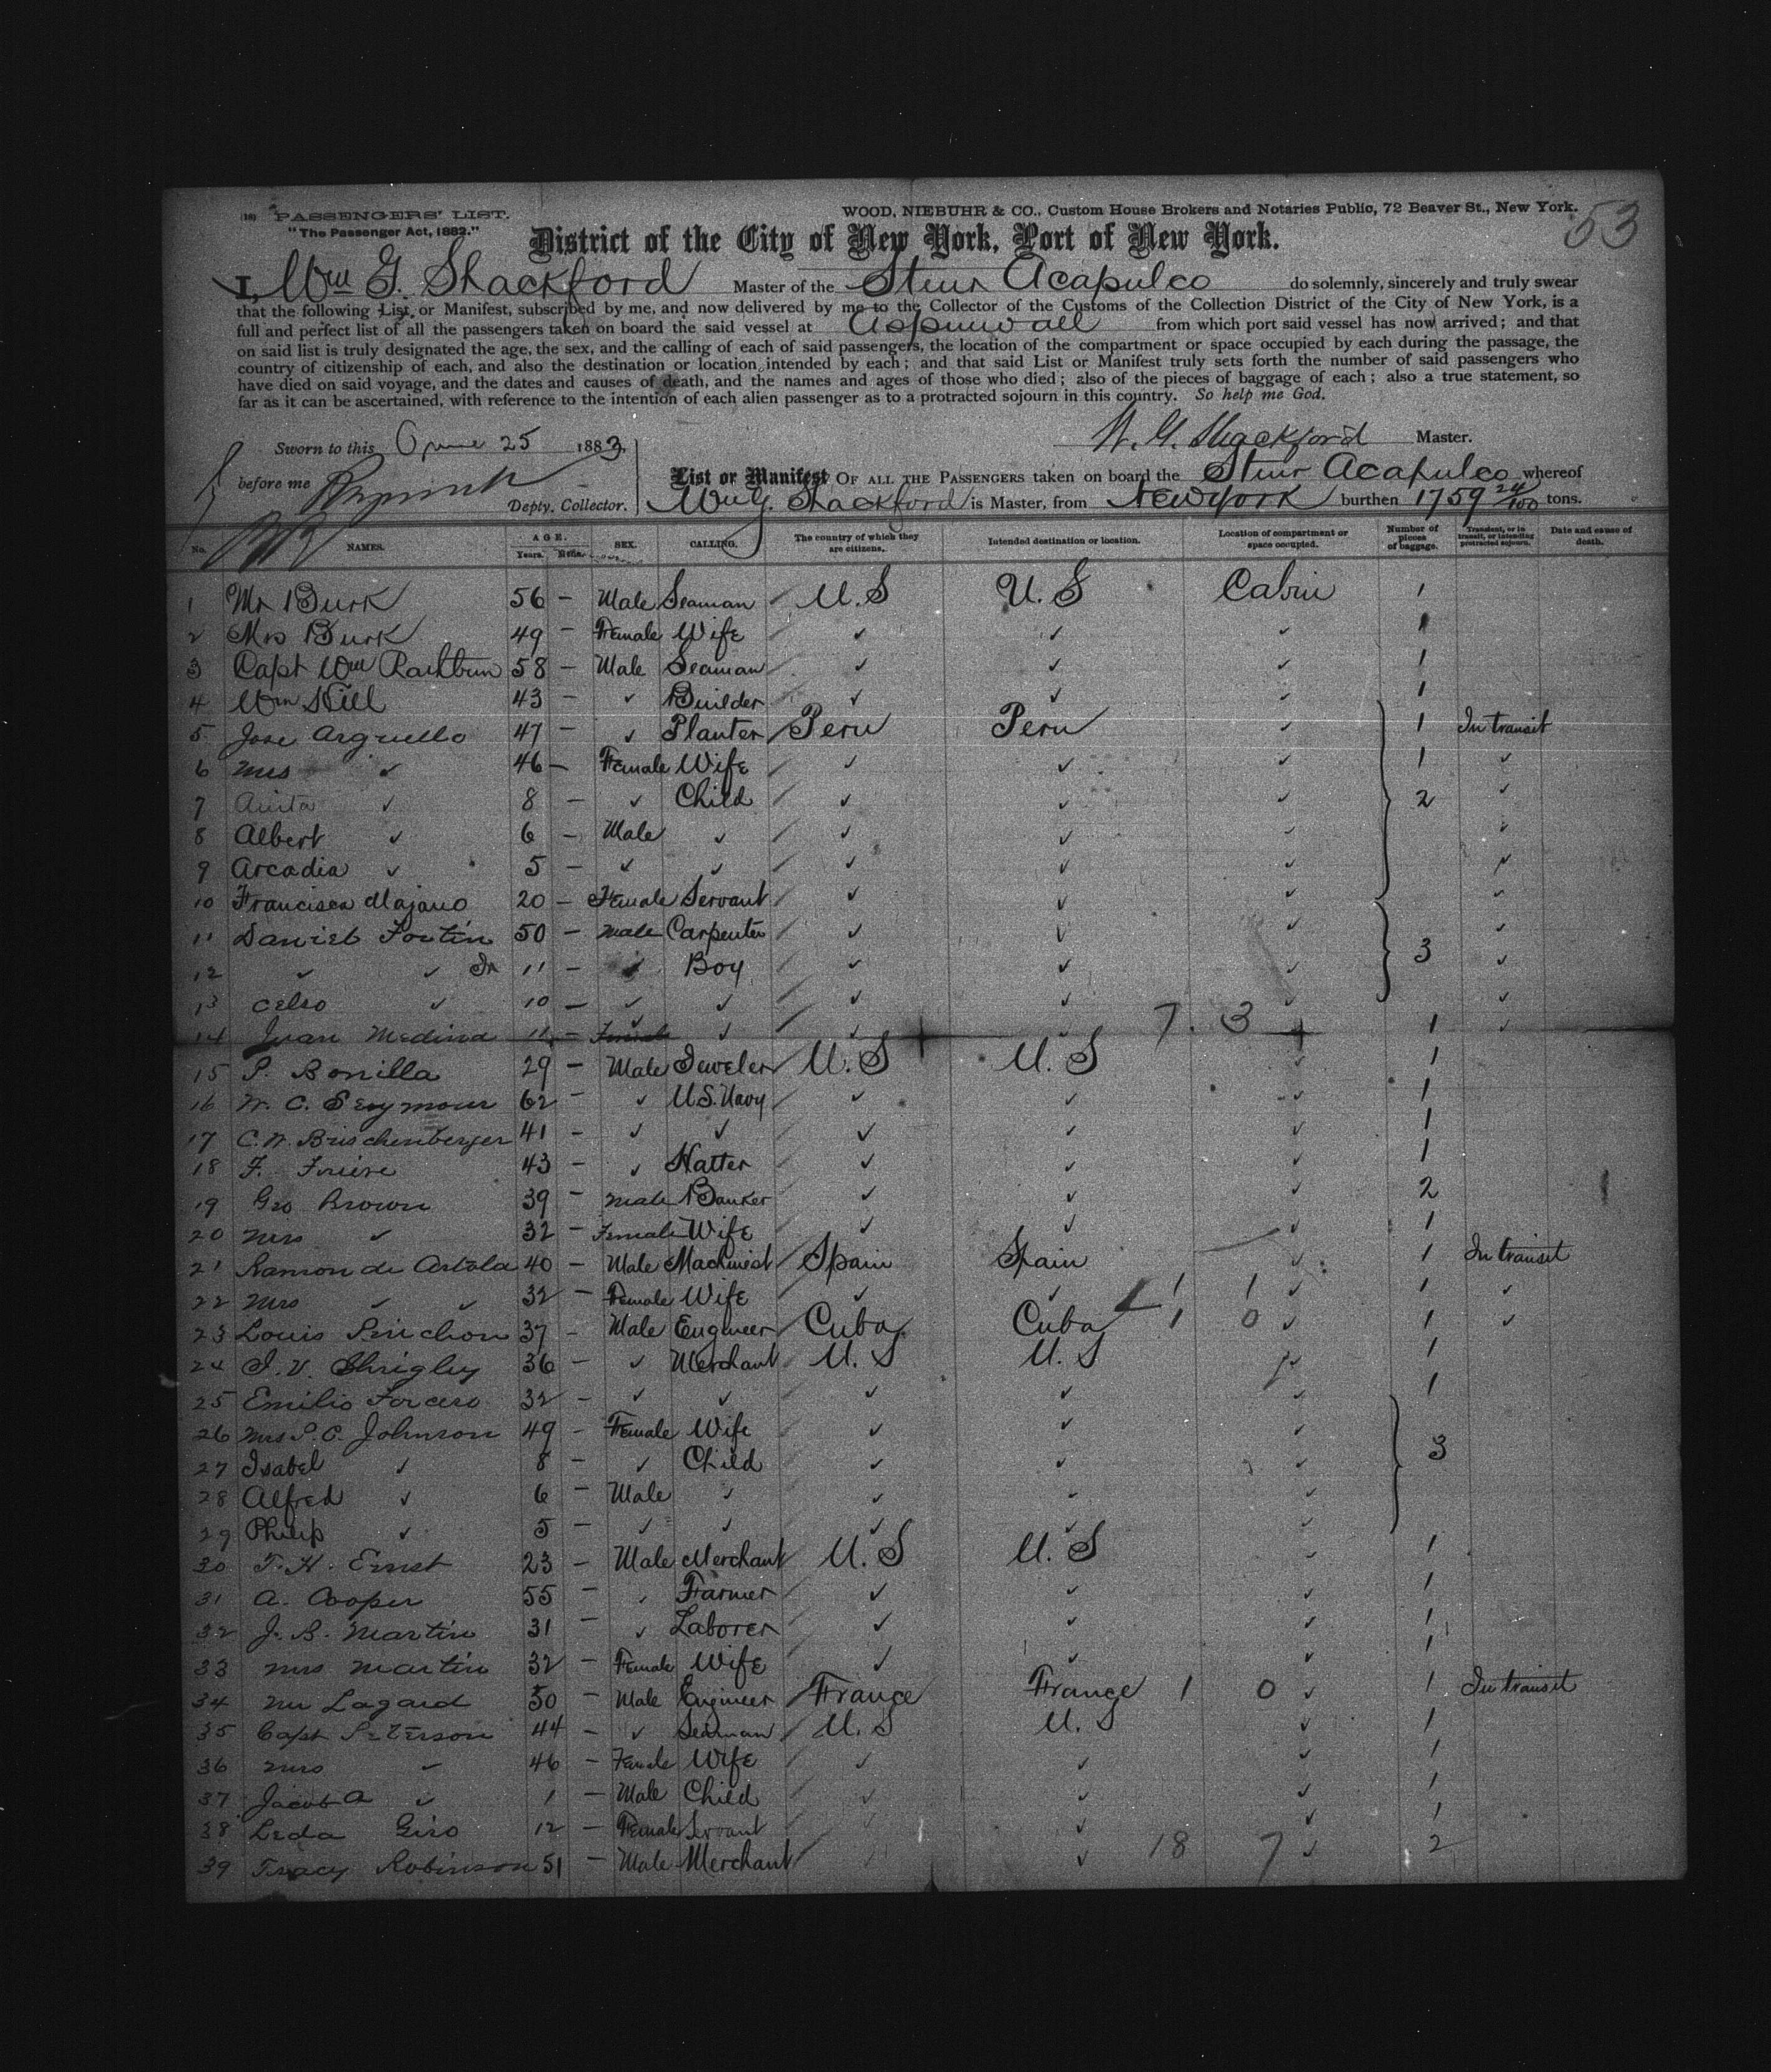 (18) PASSENGERS' LIST.
WOOD, NIEBUHR & CO., Custom House Brokers and Notaries Public, 72 Beaver St., New York.
53
"The Passenger Act, 1882."
District of the City of New York, Port of New York.
I, Wm G. Shackford Master of the Stmr Acapulco do solemnly, sincerely and truly swear
that the following List or Manifest, subscribed by me, and now delivered by me to the Collector of the Customs of the Collection District of the City of New York, is a
full and perfect list of all the passengers taken on board the said vessel at Aspinwall from which port said vessel has now arrived; and that
on said list is truly designated the age, the sex, and the calling of each of said passengers, the location of the compartment or space occupied by each during the passage, the
country of citizenship of each, and also the destination or location intended by each; and that said List or Manifest truly sets forth the number of said passengers who
have died on said voyage, and the dates and causes of death, and the names and ages of those who died; also of the pieces of baggage of each; also a true statement, so
far as it can be ascertained, with reference to the intention of each alien passenger as to a protracted sojourn in this country. So help me God.
Sworn to this June 25 1883,
W. G. Shackford Master.
before me
Depty. Collector.
List or Manifest OF ALL THE PASSENGERS taken on board the Stmr Acapulco whereof
Wm G. Shackford is Master, from New York burthen 1759 24/100 tons.
No. NAMES. AGE. Years. Mths. SEX. CALLING. The country of which they are citizens. Intended destination or location. Location of compartment or space occupied. Number of pieces of baggage. Transient, or in transit, or intending protracted sojourn. Date and cause of death.
1 Mr Burk 56 – Male Seaman U.S U.S Cabin 1
2 Mrs Burk 49 – Female Wife ✓ ✓ ✓ 1
3 Capt Wm Rathbun 58 – Male Seaman ✓ ✓ ✓ 1
4 Wm Hill 43 – ✓ Builder ✓ ✓ ✓ 1
5 Jose Arguello 47 – ✓ Planter Peru Peru ✓ 1 In transit
6 Mrs ✓ 46 – Female Wife ✓ ✓ ✓ 1 ✓
7 Anita ✓ 8 – ✓ Child ✓ ✓ ✓ 2 ✓
8 Albert ✓ 6 – Male ✓ ✓ ✓ ✓ ✓
9 Arcadia ✓ 5 – ✓ ✓ ✓ ✓ ✓ ✓
10 Francisca Majano 20 – Female Servant ✓ ✓ ✓ ✓
11 Daniel Fortin 50 – Male Carpenter ✓ ✓ ✓ 3 ✓
12 ✓ ✓ Jr 11 – ✓ Boy ✓ ✓ ✓ ✓
13 Celso ✓ 10 – ✓ ✓ ✓ ✓ ✓ ✓
7. 3
14 Juan Medina 11 – Female ✓ ✓ ✓ 1 ✓
15 P. Bonilla 29 – Male Jeweler U.S U.S ✓ 1
16 W. C. Seymour 62 – ✓ U.S. Navy ✓ ✓ ✓ 1
17 C. W. Brischenberger 41 – ✓ ✓ ✓ ✓ ✓ 1
18 F. 43 – ✓ Hatter ✓ ✓ ✓ 1
19 Geo Brown 39 – Male Banker ✓ ✓ ✓ 2
20 Mrs ✓ 32 – Female Wife ✓ ✓ ✓ 1
21 Ramon de Artola 40 – Male Machinist Spain Spain ✓ 1 In transit
22 Mrs ✓ ✓ 32 – Female Wife ✓ ✓ 1 1 ✓ 1 ✓
23 Louis Pinchon 37 – Male Engineer Cuba Cuba 1 0 ✓ 1 ✓
24 J. V. Shrigley 36 – ✓ Merchant U.S U.S ✓ 1
25 Emilio Forcero 32 – ✓ ✓ ✓ ✓ ✓ 1
26 Mrs P. C. Johnson 49 – Female Wife ✓ ✓ ✓
27 Isabel ✓ 8 – ✓ Child ✓ ✓ ✓ 3
28 Alfred ✓ 6 – Male ✓ ✓ ✓ ✓
29 Philip ✓ 5 – ✓ ✓ ✓ ✓ ✓
30 T. H. Ernst 23 – Male Merchant U.S U.S ✓ 1
31 A. Cooper 55 – ✓ Farmer ✓ ✓ ✓ 1
32 J. B. Martin 31 – ✓ Laborer ✓ ✓ ✓ 1
33 Mrs Martin 32 – Female Wife ✓ ✓ ✓ 1
34 Mr Lagard 50 – Male Engineer France France 1 0 ✓ 1 In transit
35 Capt Peterson 44 – ✓ Seaman U.S U.S ✓ 1
36 Mrs ✓ 46 – Female Wife ✓ ✓ ✓ 1
37 Jacob A ✓ 1 – Male Child ✓ ✓ ✓ 1
38 Leda Giro 12 – Female Servant ✓ ✓ ✓ 1
39 Tracy Robinson 51 – Male Merchant ✓ ✓ 18 7 ✓ 2